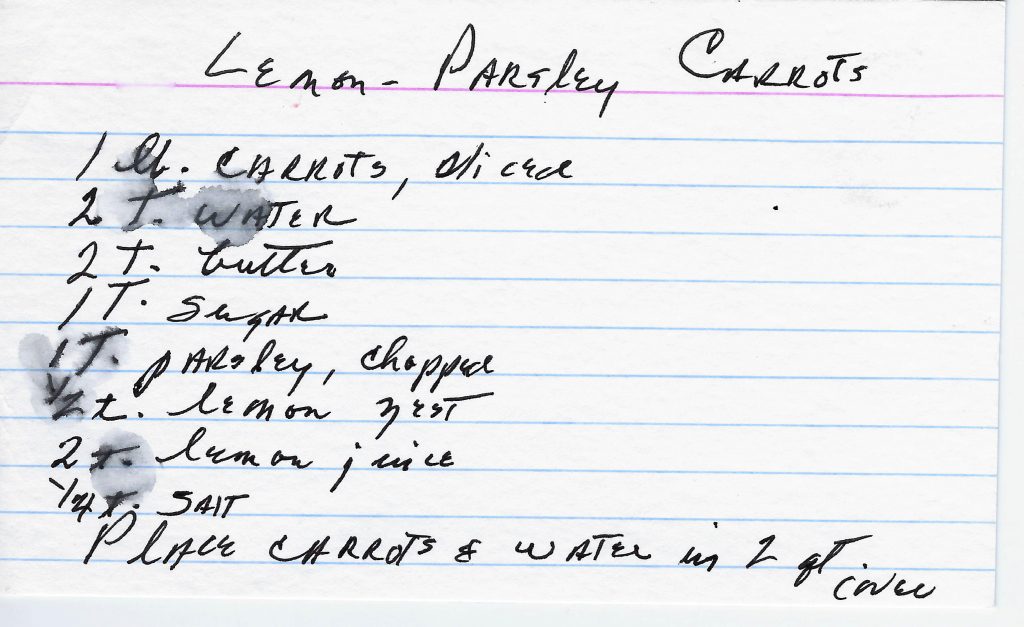 Lemon-Parsley Carrots
1 lb. carrots, sliced
2 T. water
2 T. butter
1 T. sugar
1 T. parsley, chopped
1/2 t. lemon zest
2 t. lemon juice
1/4 t. salt
Place carrots & water in 2 qt.
cover